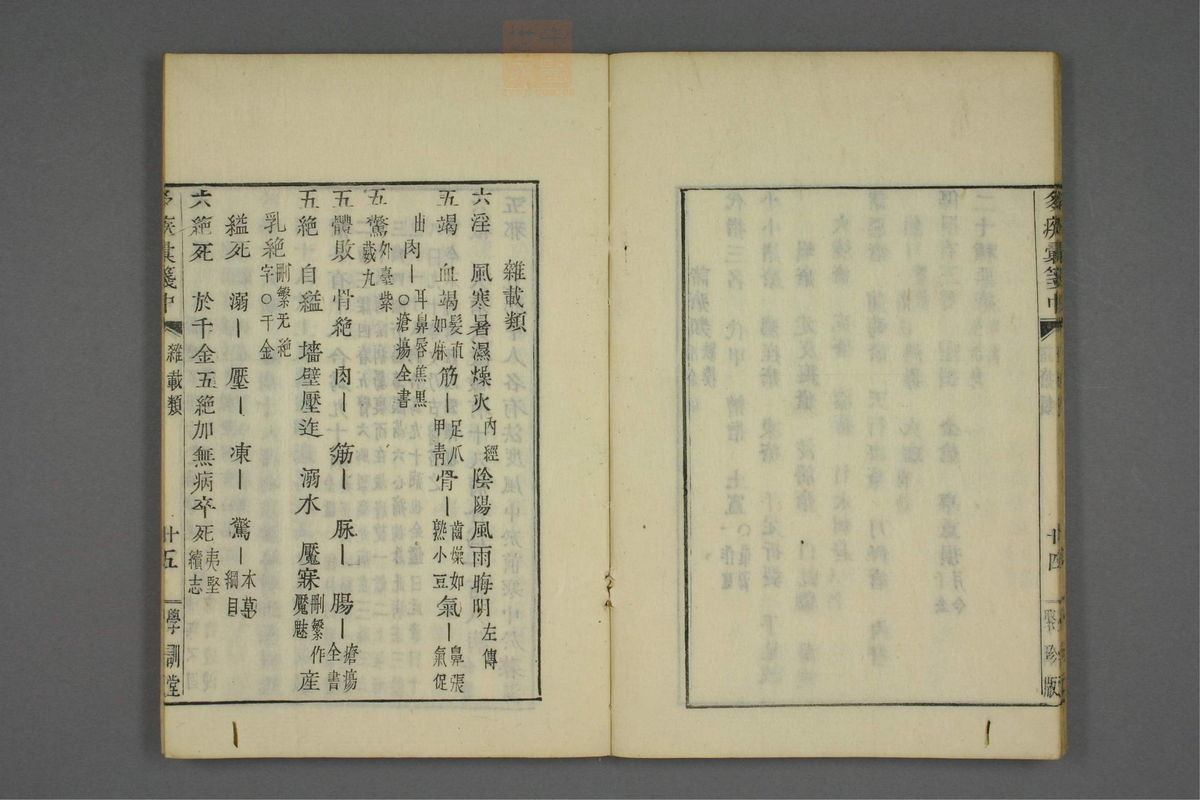 疾彙箋中
十四
聚珍版
雜載類
六淫 風寒暑濕燥火内經陰陽風雨晦明左傳
五竭 血竭髮直如麻筋―足爪甲青骨―齒燥如熟小豆氣―鼻張氣促
出肉―耳鼻唇蕉黒○瘡瘍全書
五驚外臺紫載九
五體敗有骨絶 肉― 筋― 脉― 腸―瘡瘍全書
五絶 自縊 墻壁壓迮 溺水 魘寐刪繁作魘魅産
乳絶刪繁无絶字○千金
縊死 溺― 壓― 凍― 驚―本草綱目
六絶死 於千金五絶加無病卒死夷堅續志
疾彙箋中
雜載類
十五
學訓堂